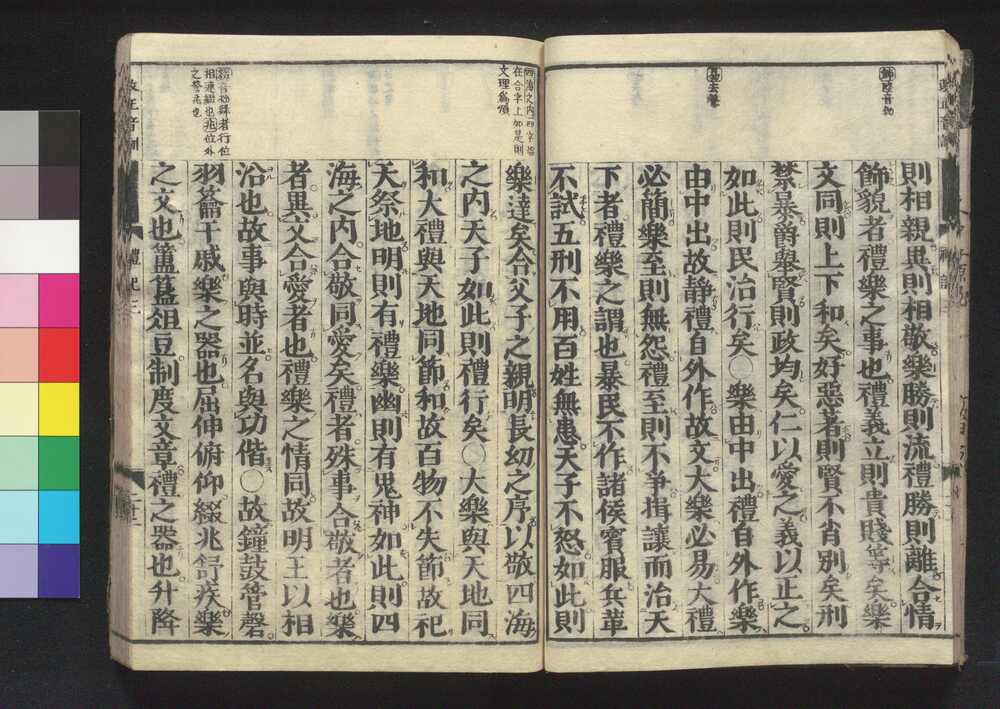 飾
易去聲
則相親異則相敬樂勝則流禮勝則離合情
飾貌者禮樂之事也禮義立則貴賤等矣樂
文同則上下和矣好惡著則賢不肖別矣刑
禁暴爵舉賢則政均矣仁以愛之義以正之
如此則民治行矣〇樂由中出禮自外作樂
由中出故静禮自外作故文大樂必易大禮
必簡樂至則無怨禮至則不爭揖讓而治天
下者禮樂之謂也暴民不作諸侯賓服兵革
不試五刑不用百姓無患天子不怒如此則
四海之内四字皆
在合字上如是則
文理爲順
綴音
樂達矣合父子之親明長幼之序以敬四海
之内天子如此則禮行矣〇大樂與天地同
和大禮與天地同節和故百物不失節故祀
天祭地明則有禮樂幽則有鬼神如此則四
海之内合敬同愛矣禮者殊事合敬者也樂
者異文合愛者也禮樂之情同故明王以相
沿也故事與時並名與功偕〇故鐘鼓管磬
羽籥干戚樂之器也屈伸俯仰綴兆舒疾樂
之文也簠簋俎豆制度文章禮之器也升降
禮記三